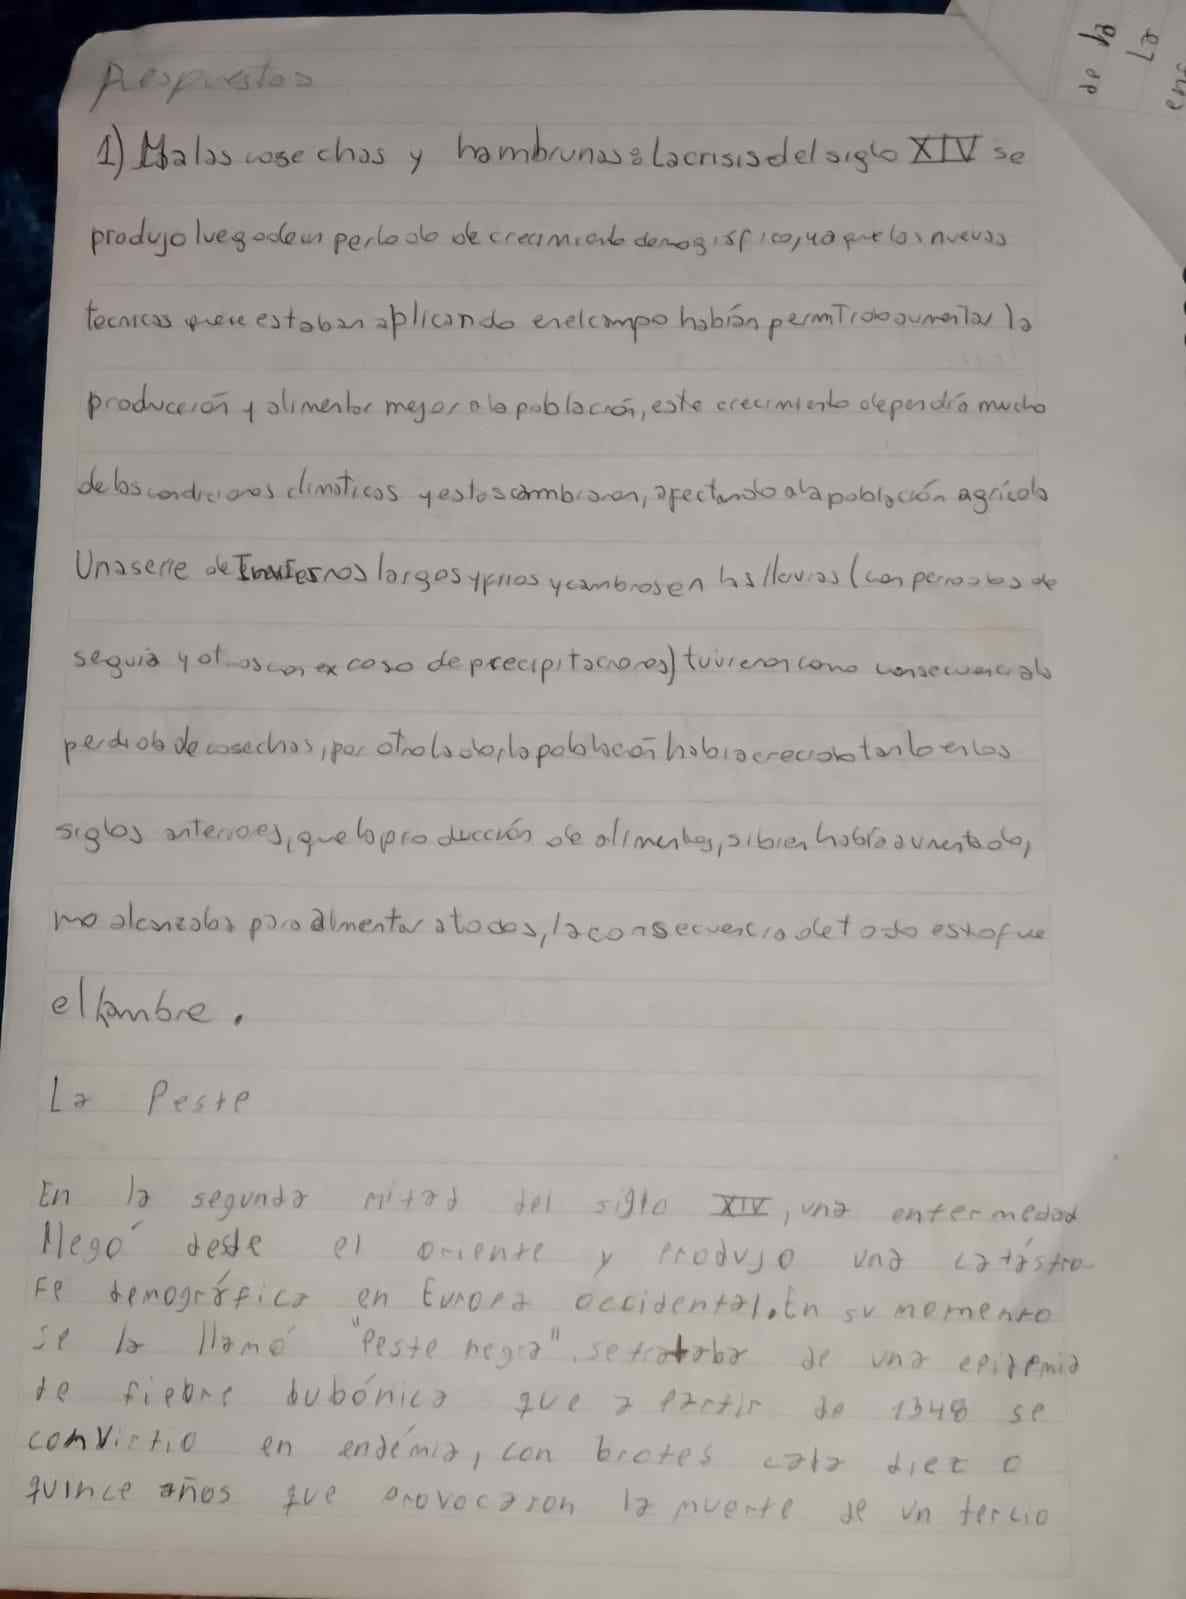 Respuestas
1) Malas cosechas y hambrunas: La crisis del siglo XIV se
produjo luego de un periodo de crecimiento demográfico, ya que las nuevas
tecnicas que se estaban aplicando en el campo habían permitido aumentar la
producción y alimentar mejor a la población, este crecimiento dependía mucho
de las condiciones climaticas y estas cambiaron, afectando a la población agrícola
Una serie de Inviernos largos y frios y cambios en las lluvias (con periodos de
sequia y otros con exceso de precipitaciones) tuvieron como consecuencia la
perdida de cosechas, por otro lado, la población habia crecido tanto en los
siglos anteriores, que la producción de alimentos, si bien había aumentado,
no alcanzaba para alimentar a todos, la consecuencia de todo esto fue
el hambre.
La Peste
En la segunda mitad del siglo XIV, una enfermedad
llegó desde el oriente y produjo una catástro-
fe demográfica en Europa occidental. En su momento
se la llamó "Peste negra". se trataba de una epidemia
de fiebre bubónica que a partir de 1348 se
convirtio en endémia, con brotes cada diez o
quince años que provocaron la muerte de un tercio
de la
La